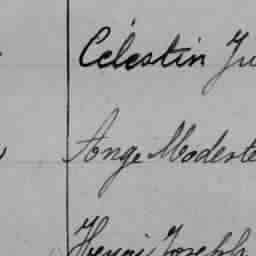 Célestin Ju
Ange Modeste
Henri Joseph